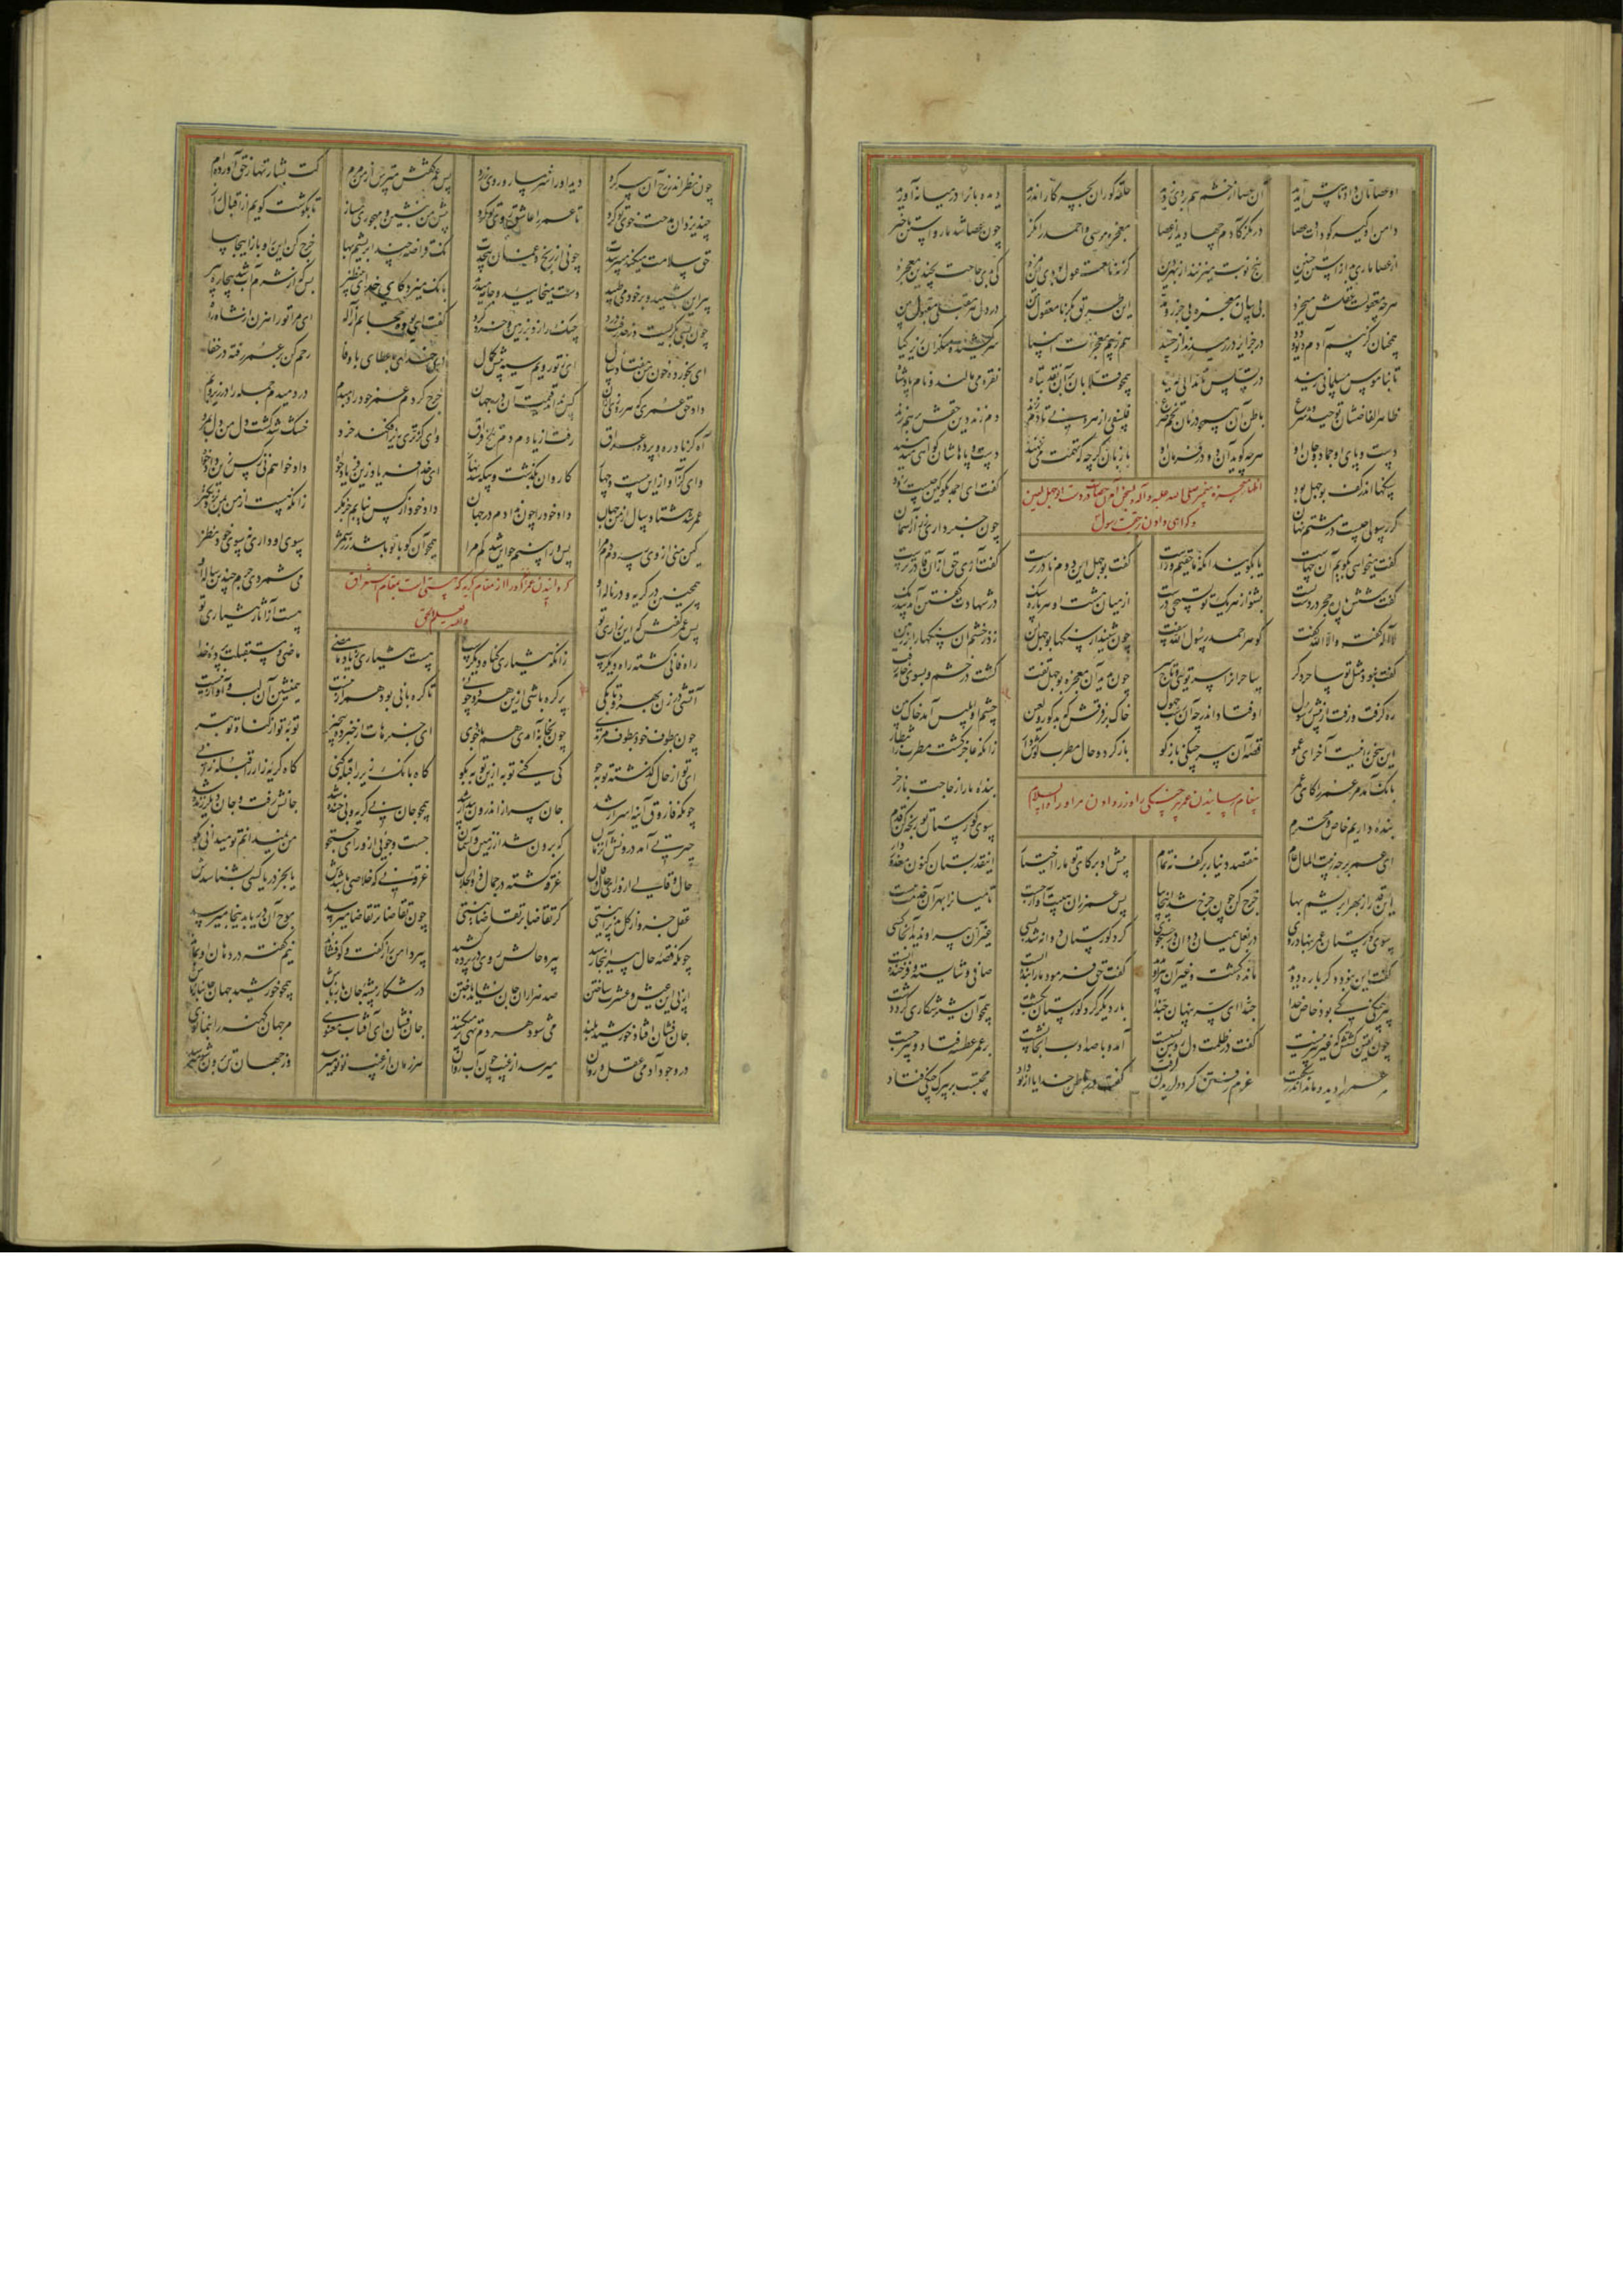 او عصاتان داد تا پیش آمدید آن عصا از خشم هم بر وی زدید حلقه کوران بچه کار اندرید دیده بانرا در میانه آورید
دامن او گیر کو دادت عصا در نگر کآدم چها دید از عصا معجزه موسی و احمد را نگر چون عصا شد مار و استن با خبر
از عصا ماری و از استن حنین پنج نوبت میزنند از بهر دین گرنه نامعقول بودی این مزه کی بدی حاجت بچندین معجزه
هرچه معقولست عقلش میخورد بی بیان معجزه بی جزر و مد این طریق بکر نامعقول بین در دل هر مقبلی مقبول بین
همچنان کز بیم آدم دیو و دد در جزایر در رمیدند از حسد هم ز بیم معجزات انبیا سر کشیده منکران زیر گیا
تا بناموس مسلمانی زیند در تسلس تا ندانی که کیند همچو قلابان بر آن نقد تباه نقره می مالند و نام پادشاه
ظاهر الفاظشان توحید و شرع باطن آن همچو در نان تخم صرع فلسفی را زهره نی تا دم زند دم زند دین حقش بر هم زند
دست و پای او جماد و جان او هرچه گوید آن دو در فرمان او با زبان گرچه که تهمت می نهند دست و پاهاشان گواهی میدهند
اظهار معجزه پیغمبر صلی الله علیه و آله و سخن آمدن سنگ در دست ابوجهل لعین
و گواهی دادن بر حقیت رسول
سنگها اندر کف بوجهل بود گفت ای احمد بگو این چیست زود
گر رسولی چیست در مشتم نهان چون خبر داری ز راز آسمان
گفت چون خواهی بگویم آن چهاست یا بگویند آنکه ما حقیم و راست گفت بوجهل این دوم نادرترست گفت آری حق از آن قادرترست
گفت شش پاره حجر در دست تست بشنو از هر یک تو تسبیحی درست از میان مشت او هر پاره سنگ در شهادت گفتن آمد بیدرنگ
لا اله گفت و الا الله گفت گوهر احمد رسول الله سفت چون شنید از سنگها بوجهل این زد ز خشم آن سنگها را بر زمین
گفت نبود مثل تو ساحر دگر ساحرانرا سر تویی و تاج سر چون بدید آن معجزه بوجهل تفت گشت در خشم و بسوی خانه رفت
ره گرفت و رفت از پیش رسول اوفتاد اندر چه آن جهول خاک بر فرقش که بد کور و لعین چشم او ابلیس آمد خاک بین
این سخن را نیست آخر ای عمو قصه آن پیر چنگی باز گو باز گرد و حال مطرب گوش دار زانکه عاجز گشت مطرب ز انتظار
پیغام رسانیدن عمر پیر چنگی را و زر دادن مر او را
بانگ آمد مر عمر را کای عمر بنده ما را ز حاجت باز خر
بنده داریم خاص و محترم سوی گورستان تو رنجه کن قدم
ای عمر برجه ز بیت المال عام هفتصد دینار بر کف نه تمام پیش او بر کای تو ما را اختیار اینقدر بستان کنون معذور دار
این قدر از بهر ابریشم بها خرج کن چون خرج شد اینجا بیا پس عمر زان هیبت آواز جست تا میانرا بهر آن خدمت ببست
سوی گورستان عمر بنهاد روی در بغل همیان دوان در جستجوی گرد گورستان دوانه شد بسی غیر آن پیر او ندید آنجا کسی
گفت این نبود دگر باره دوید مانده گشت و غیر آن پیر او ندید گفت حق فرمود ما را بنده ایست صافی و شایسته و فرخنده ایست
پیر چنگی کی بود خاص خدا حبذا ای سر پنهان حبذا بار دیگر گرد گورستان بگشت همچو آن شیر شکاری گرد دشت
چون یقین گشتش که غیر پیر نیست گفت در ظلمت دل روشن بسیست آمد و با صد ادب آنجا نشست بر عمر عطسه فتاد و پیر جست
مر عمر را دید و ماند اندر شگفت عزم رفتن کرد و لرزیدن گرفت گفت در باطن خدایا از تو داد محتسب بر پیرکی چنگی فتاد
چون نظر اندر رخ آن پیر کرد دید او را شرمسار و روی زرد پس عمر گفتش مترس از من مرم کت بشارتها ز حق آورده ام
چند یزدان مدحت خوی تو کرد تا عمر را عاشق روی تو کرد پیش من بنشین و مهجوری مساز تا بگوشت گویم از اقبال راز
حق سلامت میکند میپرسدت چونی از رنج و غمان بیحدت نک قراضه چند ابریشم بها خرج کن این را و باز اینجا بیا
پیر این بشنید و بر خود می طپید دست میخایید و جامه میدرید بانگ میزد کای خدای بی نظیر بس که از شرم آب شد بیچاره پیر
چون بسی بگریست وز حد رفت درد چنگ را زد بر زمین و خرد کرد گفت ای بوده حجابم از اله ای مرا تو راهزن از شاهراه
ای بخورده خون من هفتاد سال ای ز تو رویم سیه پیش کمال ای خدای با عطای با وفا رحم کن بر عمر رفته در جفا
داد حق عمری که هر روزی از آن کس نداند قیمت آن در جهان خرج کردم عمر خود را دمبدم در دمیدم جمله را در زیر و بم
آه کز یاد ره و پرده عراق رفت از یادم دم تلخ فراق وای کز تری زیر افکند خرد خشک شد کشت دل من دل بمرد
وای کز آواز این بیست و چهار کاروان بگذشت و بیگه شد نهار ای خدا فریاد زین فریاد خواه داد خواهم نی ز کس زین داد خواه
عمر شد هشتاد سال از من جهان داد خود را چون ندادم در جهان داد خود از کس نیابم جز مگر زانکه هست از من بمن نزدیکتر
کین منی از وی رسد دم دم مرا پس ورا بینم چو این شد کم مرا همچو آن کو با تو باشد زر شمر سوی او داری نه سوی خود نظر
گردانیدن عمر او را از مقام گریه که هستی است بمقام استغراق
همچنین در گریه و در ناله او می شمردی جرم چندین ساله او
پس عمر گفتش که این زاری تو هست آثار هشیاری تو
راه فانی گشته راه دیگرست زانکه هشیاری گناه دیگرست هست هشیاری ز یاد ما مضی ماضی و مستقبلت پرده خدا
آتشی در زن بهر دو تا بکی پر گره باشی ازین هر دو چو نی تا گره با نی بود همراز نیست همنشین آن لب و آواز نیست
چون بطوف خود بطوف مرتدی چون بخانه آمدی هم با خودی ای خبرهات از خبر ده بیخبر توبه تو از گناه تو بتر
ای تو از حال گذشته توبه جو کی کنی توبه ازین توبه بگو گاه بانگ زیر را قبله کنی گاه گریه زار را قبله زنی
چونکه فاروق آینه اسرار شد جان پیر از اندرون بیدار شد همچو جان بی گریه و بی خنده شد جانش رفت و جان دیگر زنده شد
حیرتی آمد درونش آن زمان که برون شد از زمین و آسمان جست و جویی از ورای جستجو من نمیدانم تو میدانی بگو
حال و قالی از ورای حال و قال غرقه گشته در جمال ذوالجلال غرقه نی که خلاصی باشدش یا بجز دریا کسی بشناسدش
عقل جزو از کل پذیرا نیستی گر تقاضا بر تقاضا نیستی چون تقاضا بر تقاضا میرسد موج آن دریا بدینجا میرسد
چونکه قصه حال پیر اینجا رسید پیر و حالش روی در پرده کشید پیر دامن را ز گفت و گو فشاند نیم گفته در دهان او بماند
از پی این عیش و عشرت ساختن صد هزاران جان بشاید باختن در شکار بیشه جان باز باش همچو خورشید جهان جانباز باش
جان فشان افتاد خورشید بلند می شود هر دم تهی پر میکنند جان فشان ای آفتاب معنوی مر جهان کهنه را بنما نوی
در وجود آدمی عقل و روان میرسد از غیب چون آب روان هر زمان از غیب نو نو میرسد وز جهان تن برون شو میرسد